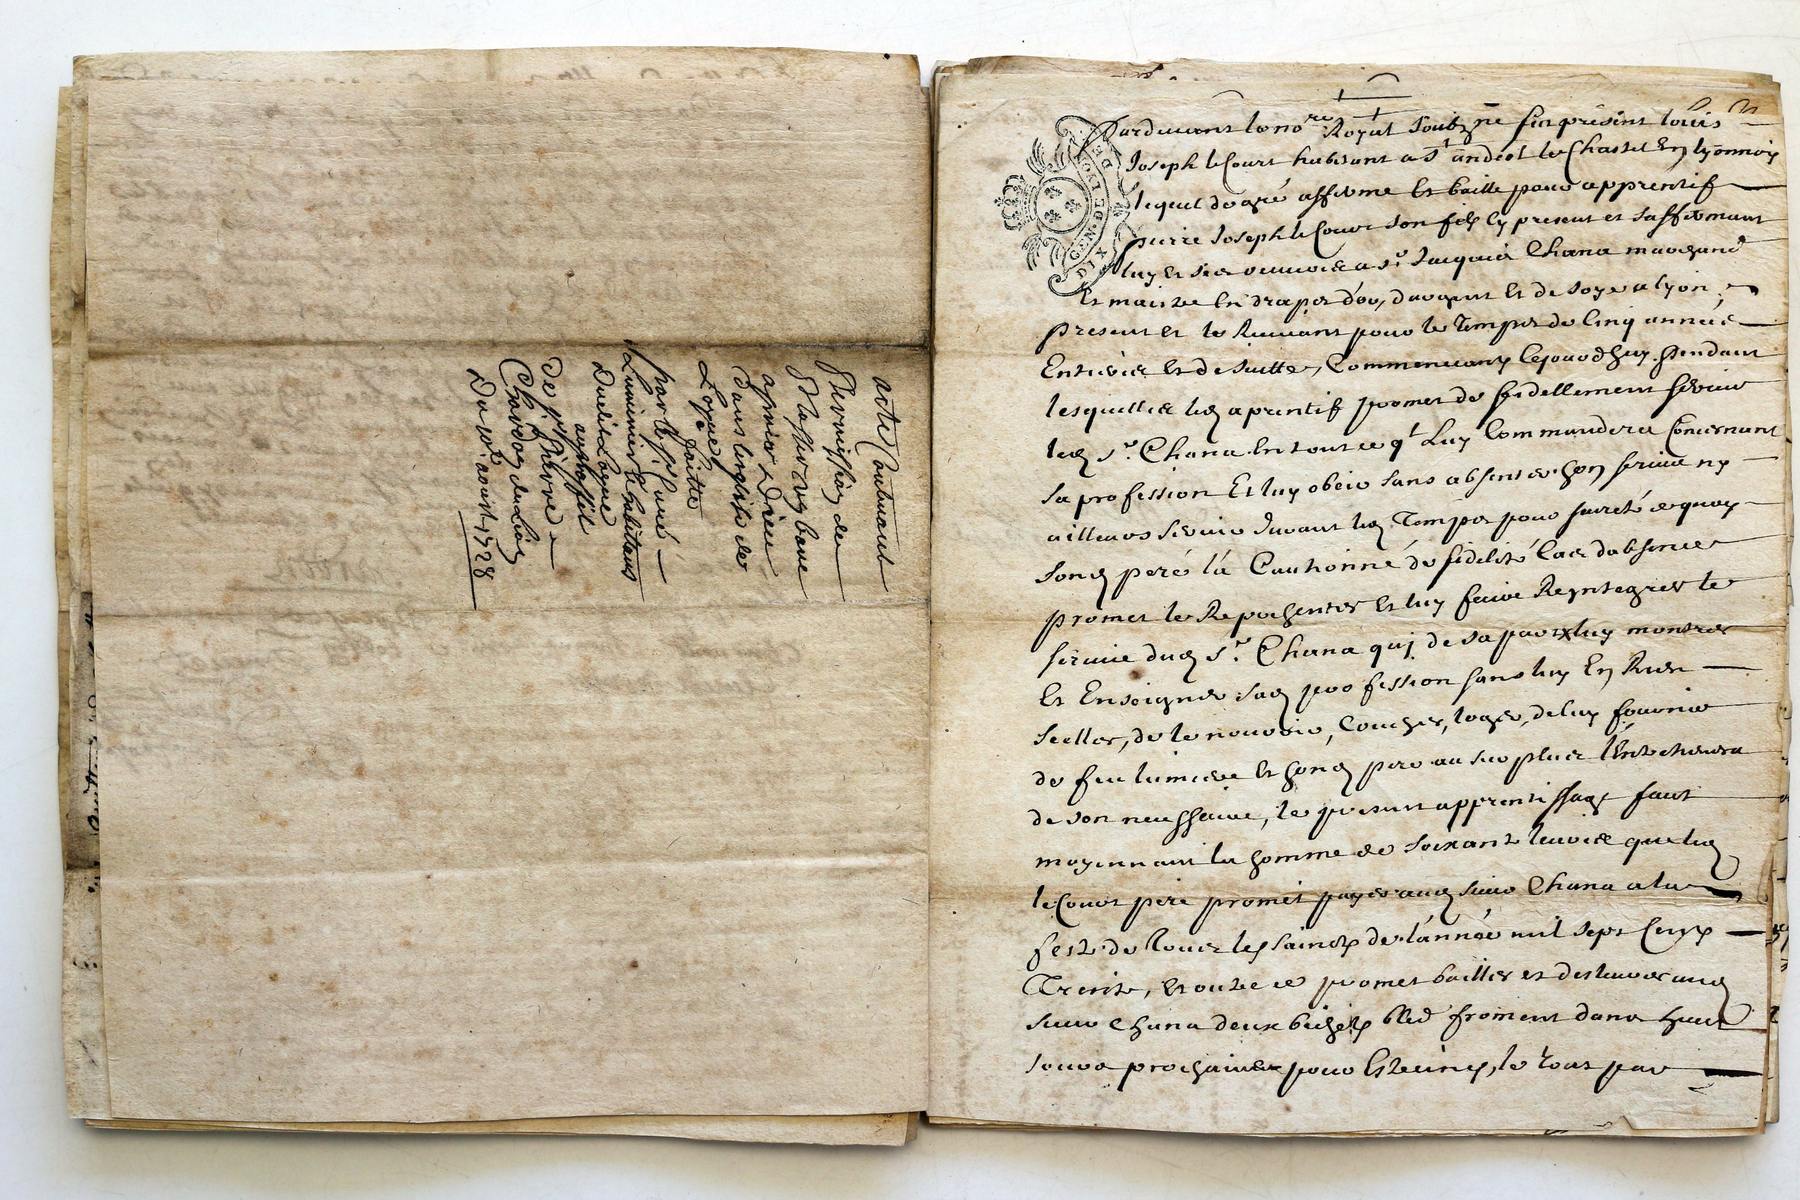 acte Contenant
permission de
prier Dieu
dans leglise de
Loque faitte
par le s.r Curé
Luminier & habitans
Dudit Loque
De s.t Pierre
Du aoust 1728
GEN. DE LYON
DIX
Pardevant le no.re Royal soubz.né fut présent loüis
Joseph leCourt habitant a S.t andeol le Chastel En lyonnois
lequel de gré afferme Et baille pour apprentif
pierre Joseph leCour son fils Cy present et saffermant
luy Et ses oeuvres a s.r Jacques Chana marchand
Et maitre En draps d'or, d'argent Et de soye a lyon
present et le Recevant pour le Temps de Cinq années
Entieres Et de suitte, Commencant Cejourdhuy. pendant
lesquelles led aprentif promet de fidellement servir
led s.r Chana En tout ce q.l Luy Commandera Concernant
sa profession Et luy obeir sans absenter son service ny
ailleurs servir durant led Temps pour sureté de quoy
sond peré la Cautionné de fidelité Cas dabsence
promet le Representer Et luy faire Reyntegrer le
service dud s.r Chana qui de sa part luy montrer
Et Enseigner sad profession sans luy En Rien
Celler, de le nourrir, Coucher, loger, de luy fournir
de feu lumiere Et sond pere au surplus l'Entretiendra
de son necessaire, le present apprentissage fait
moyennant la somme de soixante livres que led
leCourt pere promet payer aud sieur Chana a la
feste de Tous les saincts de l'année mil sept Cents
Trente, Et outre ce promet bailler et deslivrer aud
sieur Chana deux bichets bled froment dans huit
jours prochains pour Estreines, le tout par